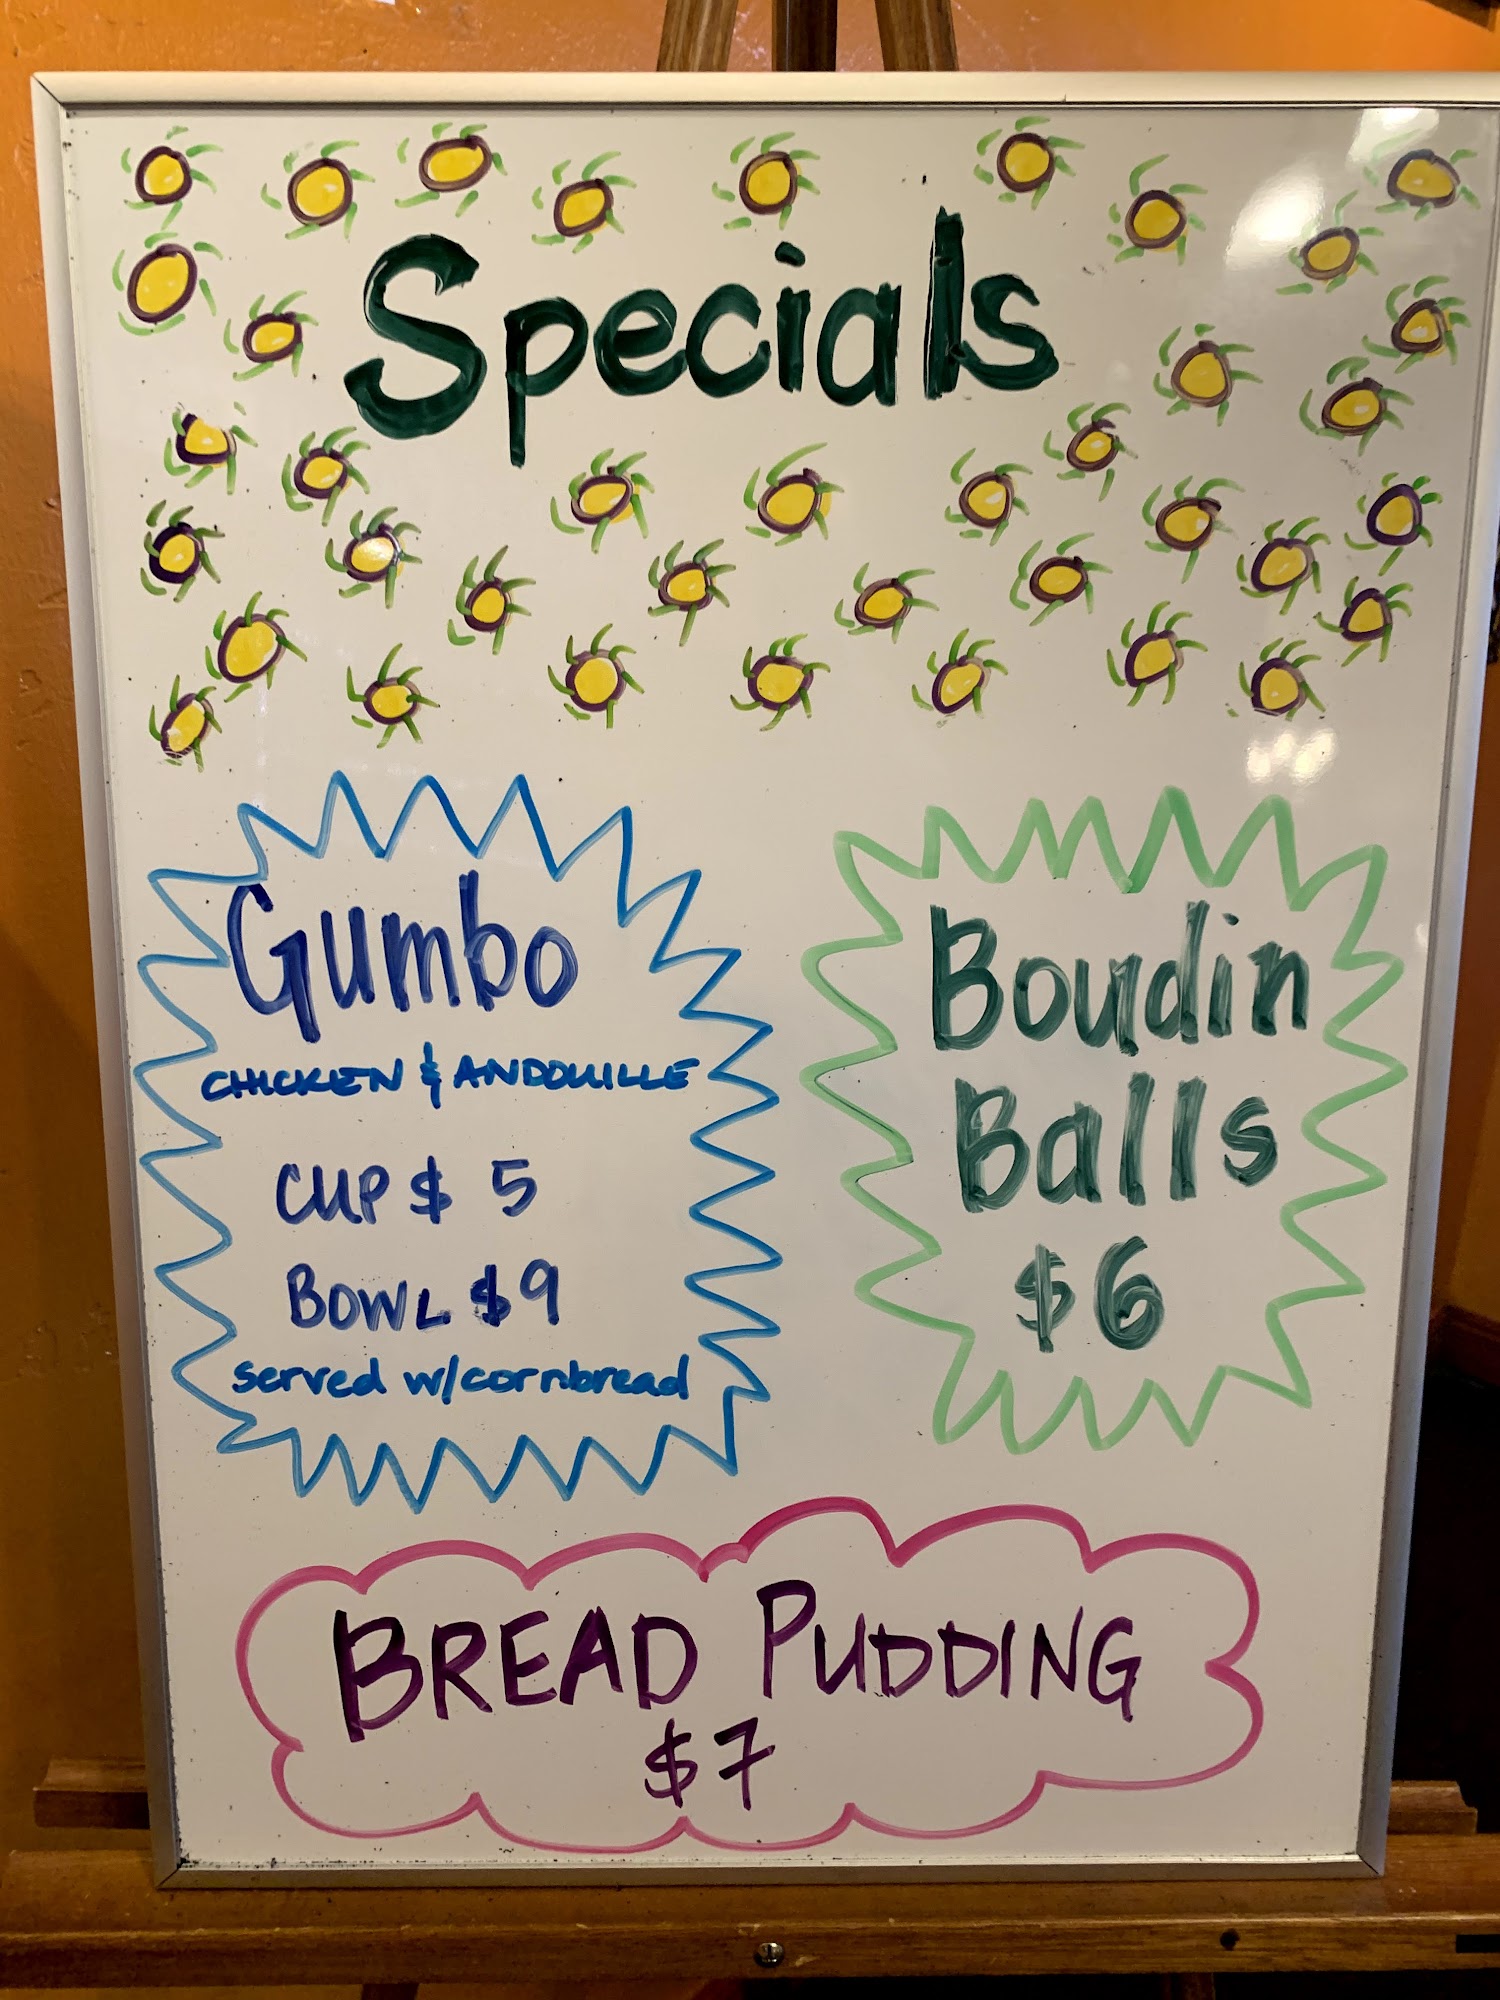 Specials
Gumbo
CHICKEN & ANDOUILLE
CUP $ 5
BOWL $9
served w/cornbread
Boudin
Balls
$6
BREAD PUDDING
$7